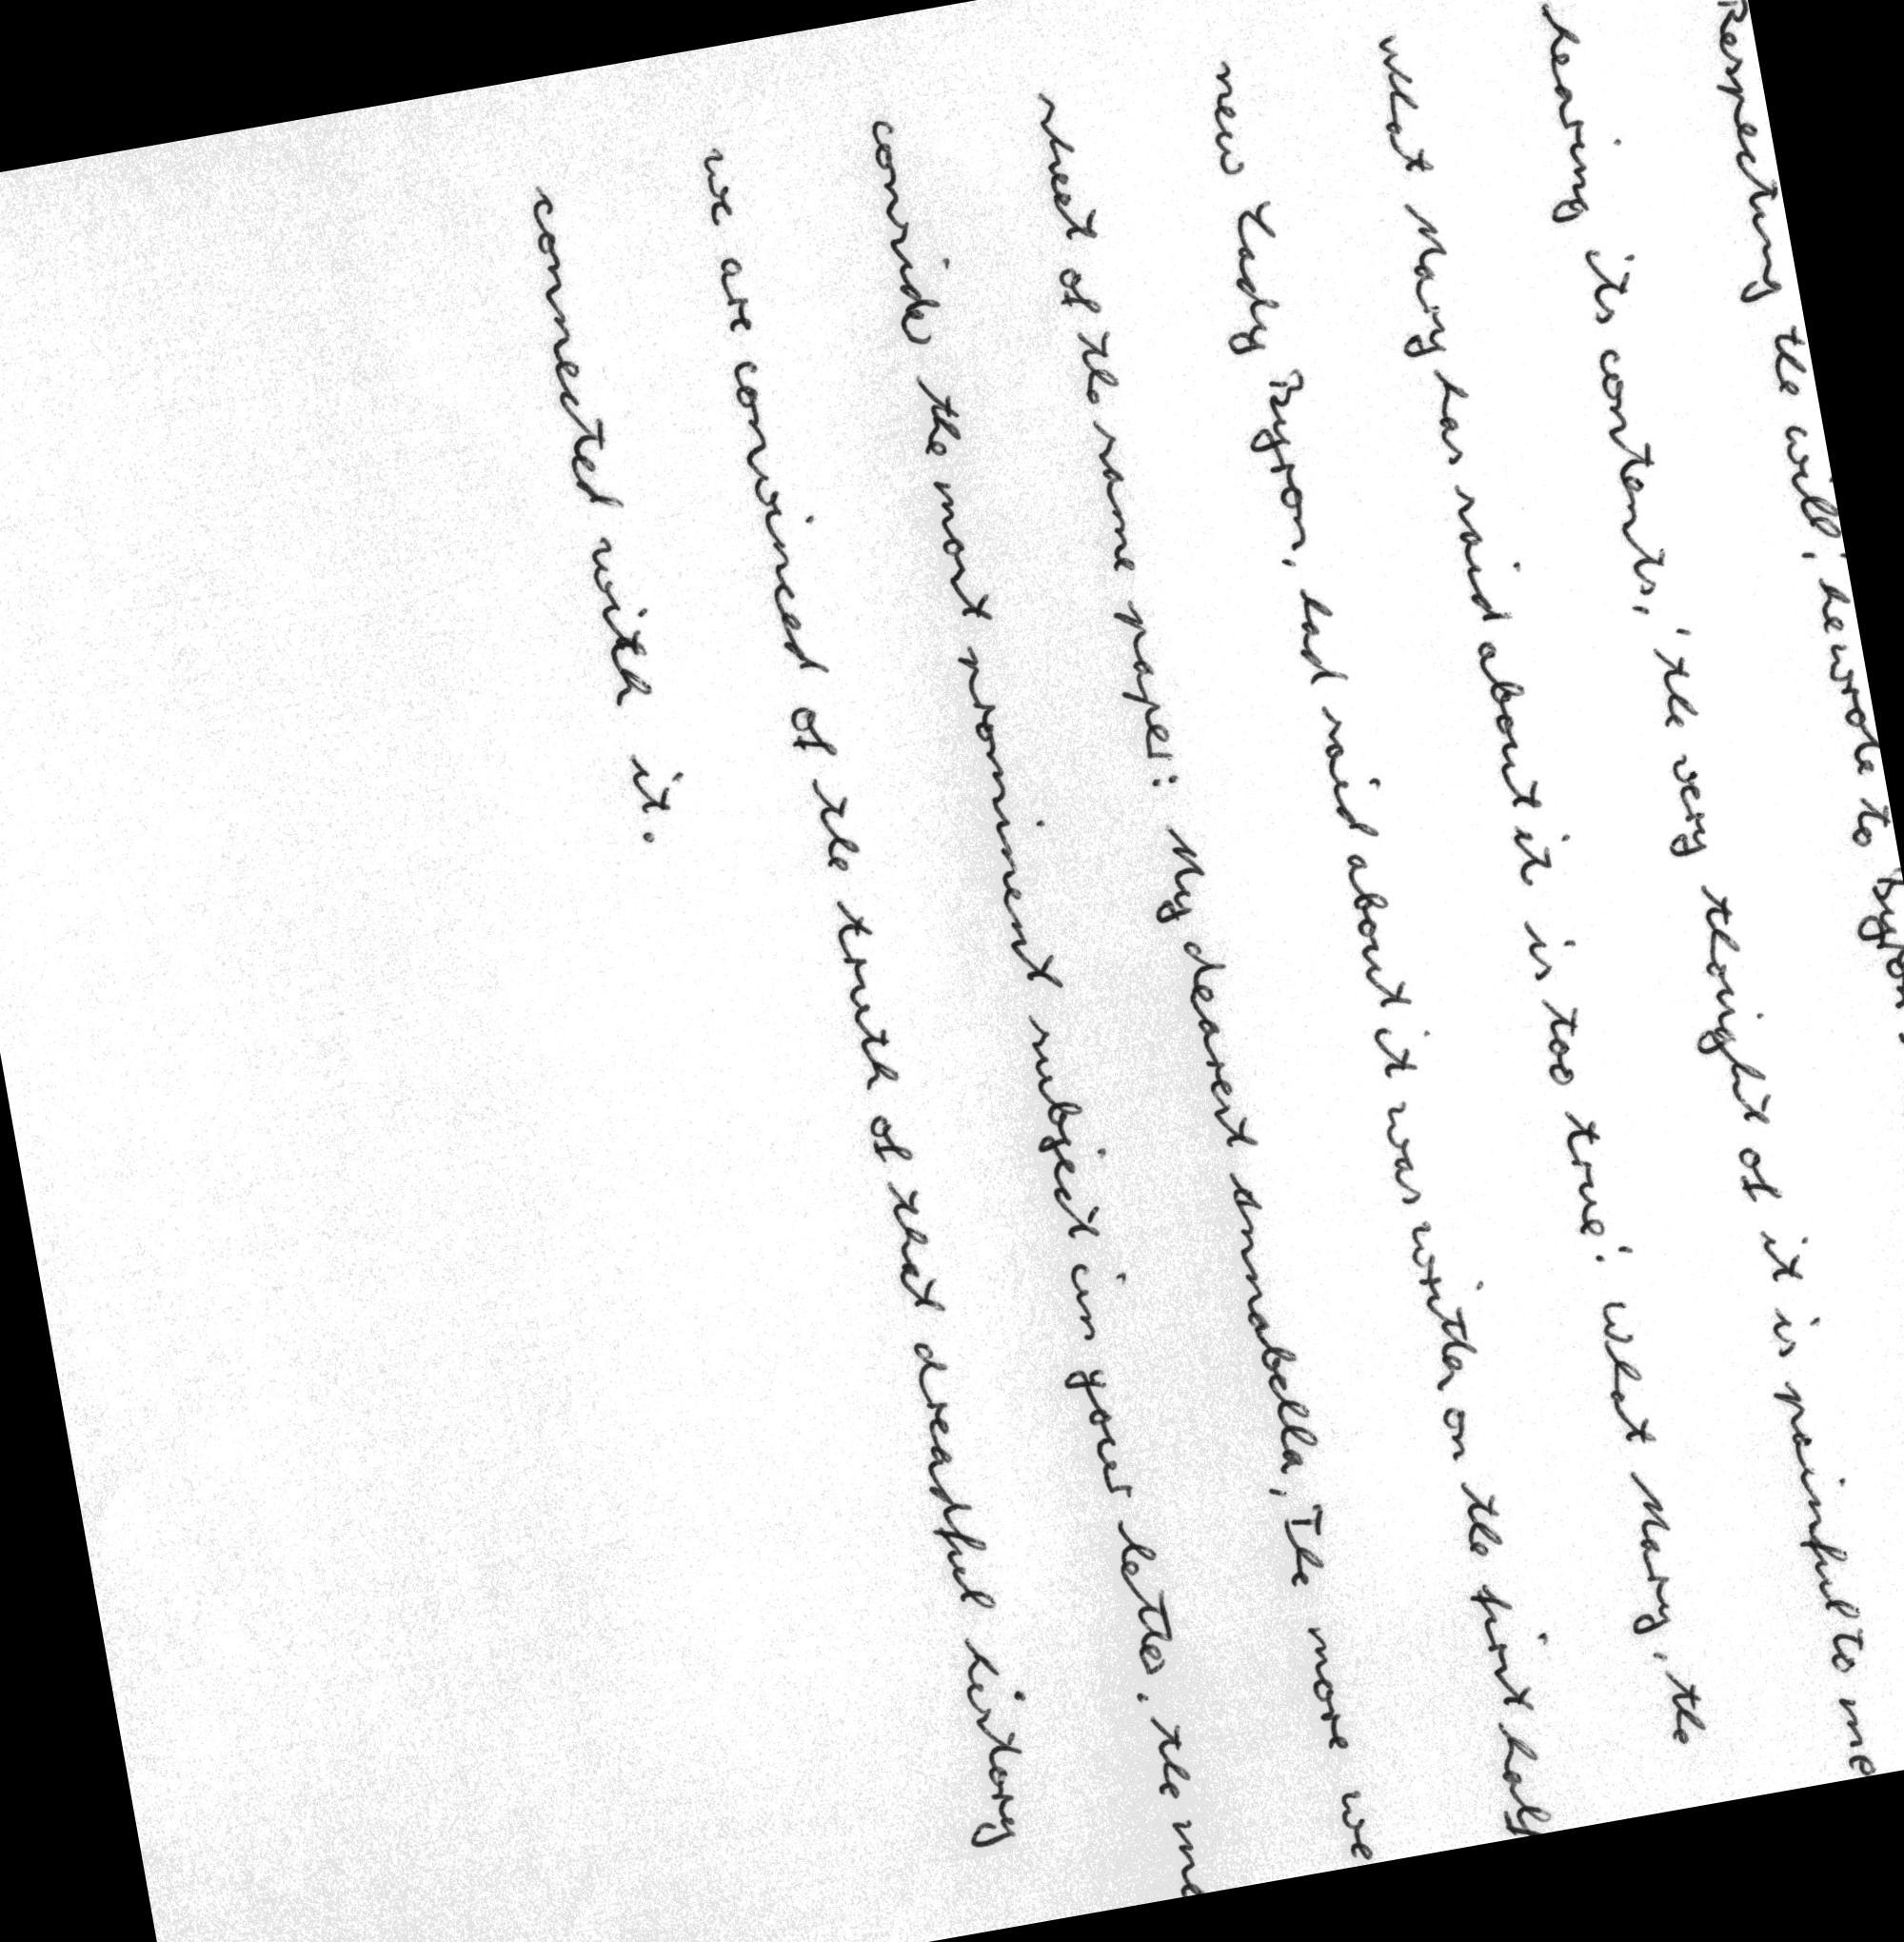 Respecting the will,' he wrote to Byron
hearing its contents, 'the very thought of it is painful to me
what Mary has said about it is too true.' What Mary, the
new Lady Byron, had said about it was written on the first half
sheet of the same paper: My dearest Annabella, The more we
consider the most prominent subject in your letter, the
we are convinced of the truth of that dreadful history
connected with it.